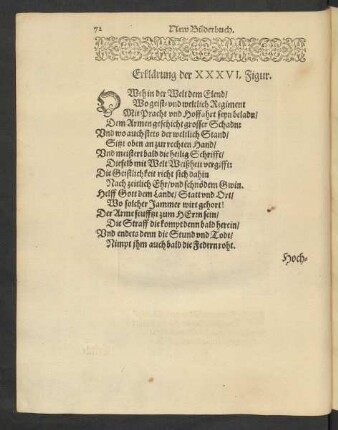 72
New Bilderbuch.
Erklärung der XXXVI. Figur.
O Weh in der Welt dem Elend/
Wo geist- vnd weltlich Regiment
Mit Pracht vnd Hoffahrt seyn beladn/
Dem Armen geschicht grosser Schadn:
Vnd wo auch stets der weltlich Stand/
Sitzt oben an zur rechten Hand/
Vnd meistert bald die heilig Schrifft/
Dieselb mit Welt Weißheit vergifft:
Die Geistlichkeit richt sich dahin
Nach zeitlich Ehr/ vnd schnödem Gwin.
Helff Gott dem Landt/ Statt vnd Ort/
Wo solcher Jammer wirt gehort!
Der Arme seufftzt zum HErrn sein/
Die Straff die kompt denn bald herein/
Vnd endets denn die Stund vnd Todt/
Nimpt jhm auch bald die Federn roht.
Hoch-